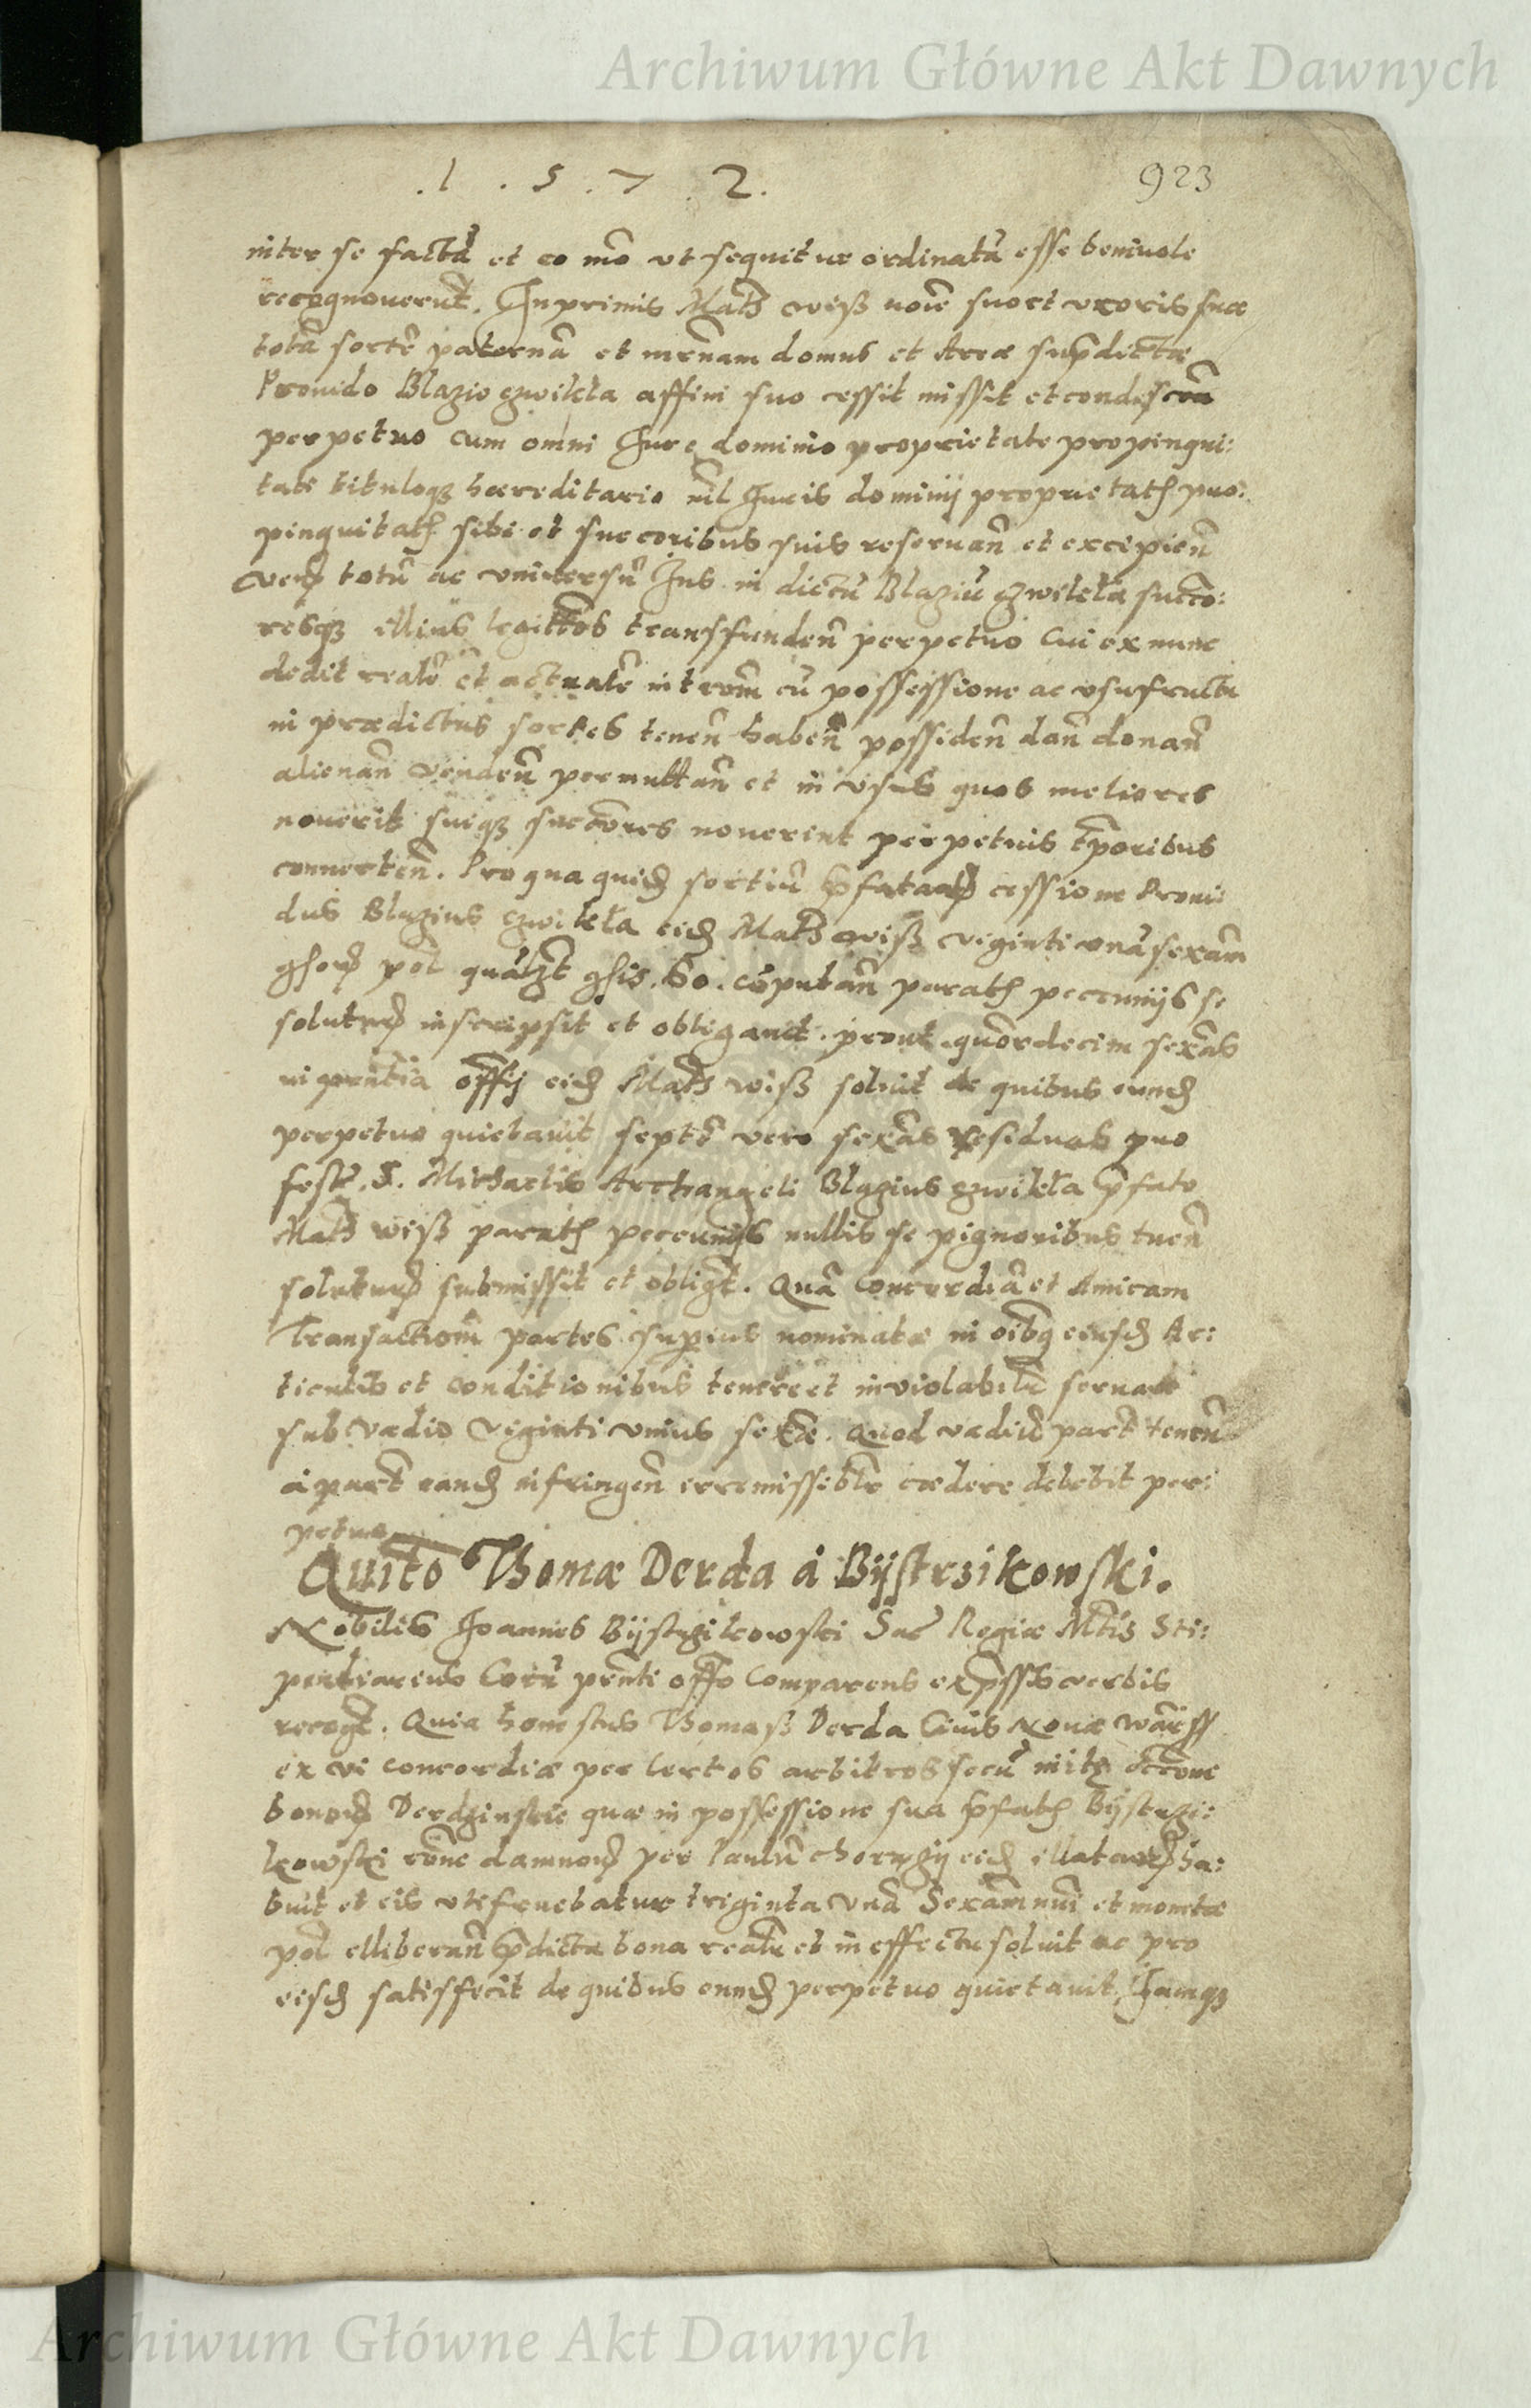 Archiwum Główne Akt Dawnych
.1 . 5 . 7 . 2.
923
inter se factā et eo mō ut sequitur ordinatā esse beniuole
recognouerūt. Inprimis Math wiß noīe suo et vxoris suæ
totā sortē paternā et mrnam domus et Areæ supdictæ
Prouido Blazio gzwikła affini suo cessit missit et condescen
perpetuo cum omni Jure dominio proprietate propinqui:
tate tituloqз hæreditario nīl Juris dominij proprietatis pro:
pinquitatis sibi et succoribus suis reseruan̄ et excipien̄
verum totū ac vniuersū Jus in dictū Blaziū gzwikła succo:
resqз illius legittos transfunden̄ perpetuo Cui ex nunc
dedit realē et actualē introm cū possessione ac vsufructu
in prædictas sortes tenen̄ haben̄ possiden̄ dan̄ donan̄
alienan̄ venden̄ permuttan̄ et in vsus quos meliores
nouerit suiqз succores nouerint perpetuis tporibus
conuerten̄. Pro qua quidem sortiū pfatarum cessione Proui
dus Blazius gzwikła eidem Math wiß viginti vnā sexam
gsorum pol quālȝt gsis. 60. cōputan̄ paratis pecunijs se
soluturum inscripsit et obligauit. prout quordecim sexas
in prntia offij eidem Math wiß soluit de quibus eundem
perpetuo quietauit septē vero sexas residuas pro
festo. S. Michaelis Archangeli Blazius gzwikła pfato
Math wiß paratis pecunijs nullis se pignoribus tuen̄
soluturum submissit et obligt. Quā Concordiā et Amicam
Transactiom partes superius nominatæ in oibq eiusdem Ar:
ticulis et conditionibus tenere et inviolabilr seruare
sub vadio Viginti vnius sexæ. Quod vadiū part tenen̄
à part eandem infringen̄ irremissiblr cædere debebit per:
petuo
Quito Thomæ Derda à Bijstrzikowski.
Nobilis Joannes Bijstrzikowski Sac Regiæ Mtis Sti:
pendiarius Corā prnti offo Comparens expssis verbis
recogt. Quia honestus Thomaß Derda Ciuis Nouæ warss
ex vi concordiæ per certos arbitros secū initæ
bonorum Derdzinskie quæ in possessione sua pfatus Bijstrzi:
kowski rōne damnorum per Paulū eidem illatarum ha:
buit et eis vtifruebatur triginta vnā Sexam nūi et monetæ
pol elliberan̄ pdicta bona realr et in effectu soluit ac pro
eisdem satisfecit de quibus eundem perpetuo quietauit Jamqз
Archiwum Główne Akt Dawnych